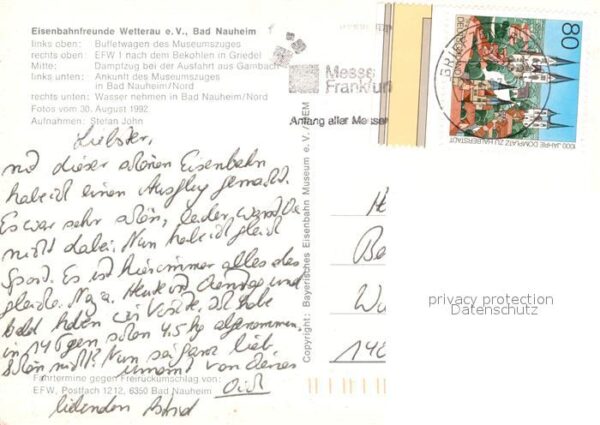 Eisenbahnfreunde Wetterau e.V., Bad Nauheim
links oben: Buffetwagen des Museumszuges
rechts oben: EFW 1 nach dem Bekohlen in Griedel
Mitte: Dampfzug bei der Ausfahrt aus Gambach
links unten: Ankunft des Museumszuges
in Bad Nauheim/Nord
rechts unten: Wasser nehmen in Bad Nauheim/Nord
Fotos vom 30. August 1992
Aufnahmen: Stefan John
Liebster,
mit dieser schönen Eisenbahn
habe ich einen Ausflug gemacht.
Es war sehr schön, leider warst Du
nicht dabei. Nun habe ich gleich
Sport. Es ist hier immer alles das
gleiche. Na ja. Heute ist Dienstag und
bald haben wir Visite. Ich habe
in 14 Tagen schon 4,5 kg abgenommen.
Schön nicht? Nun sei ganz lieb
umarmt von Deiner
Dich
liebenden Astrid
Fahrtermine gegen Freirückumschlag von:
EFW, Postfach 1212, 6350 Bad Nauheim
Copyright: Bayerisches Eisenbahn Museum e.V./BEM
Messe
Frankfurt
Anfang aller Messen
80
DEUTSCHE
1000 JAHRE DOMPLATZ ZU HALBERSTADT
H
Be
Wu
146
privacy protection
Datenschutz